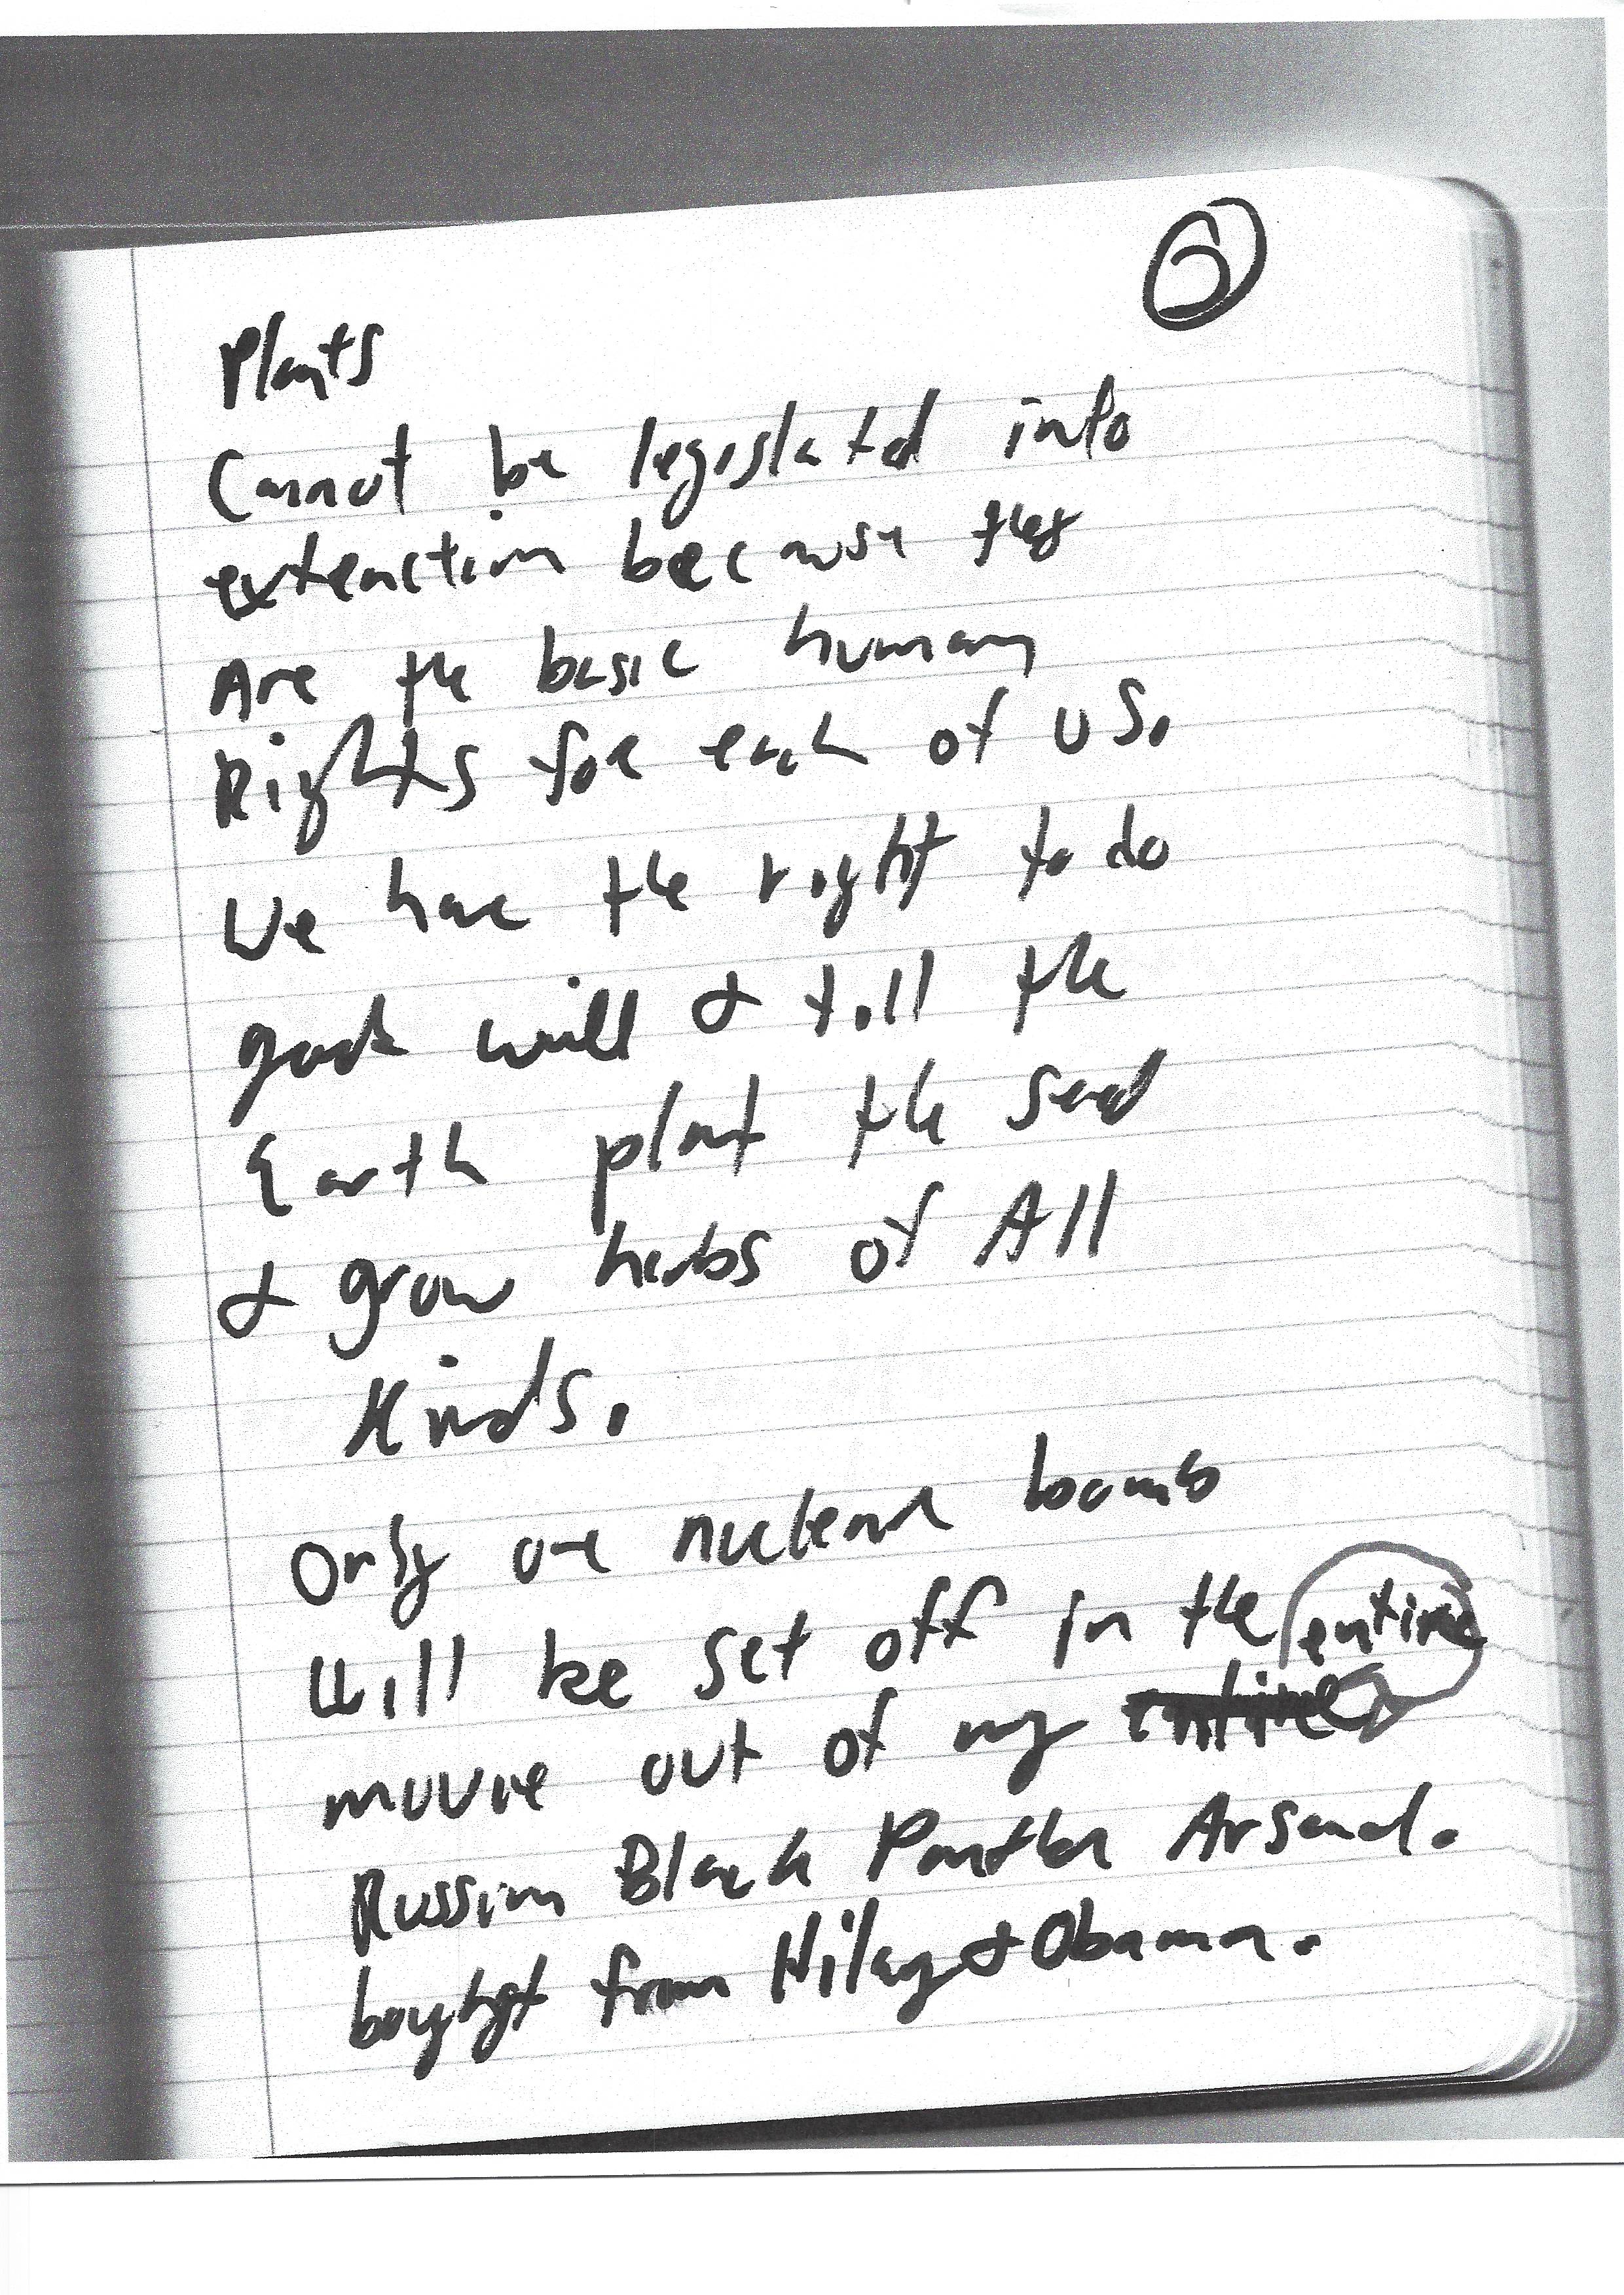 5
Plants
Cannot be legislated into
extenction because they
Are the basic human
Rights foe each of US.
We have the right to do
good will & till the
Earth plant the seed
& grow herbs of All
Kinds.
Only one nuclear bomb
Will be set off in the entire
movie out of my entire
Russian Black Panther Arsenal.
boughgt from Hilary & Obama.